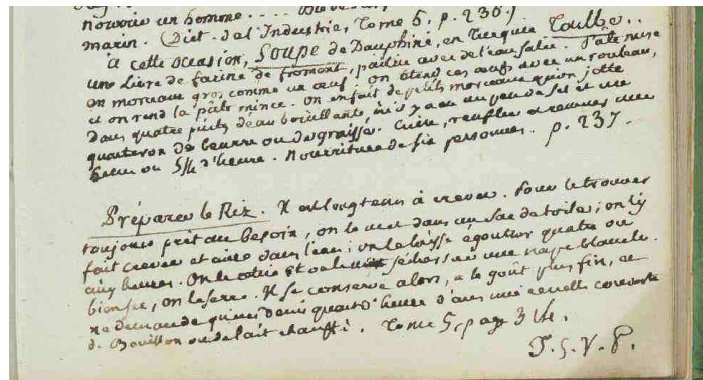 nourrir un homme
marin. (Dict. de l'Industrie, Tome 5, p. 236.)
à cette occasion, Soupe de Dauphiné, en Turquie Toulba..
une Livre de farine de froment, paitrie avec de l'eau salée. Pâte mise
en morceaux gros comme un œuf. on étend ces œufs avec un rouleau,
et on rend la pâte mince. on en fait de petits morceaux qu'on jette
dans quatre pintes d'eau bouillante, où il y a eu un peu de sel et un
quarteron de beurre ou de graisse. Cuire, renfler et remuer une
heure ou 5/4 d'heure. Nourriture de six personnes. p. 237.
Préparer le Riz. Il est longtems à crever. Pour le trouver
toujours prêt au besoin, on le met dans un sac de toile; on l'y
fait crever et cuire dans l'eau; on le laisse égoutter quatre ou
cinq heures. On le retire et on le met sécher sur une nape blanche.
bien sec, on le serre. Il se conserve alors, a le goût plus fin, et
ne demande qu'un demi quart d'heure dans une écuelle couverte
de Bouillon ou de lait chauffé. Tome 5, pag 314.
T. S. V. P.